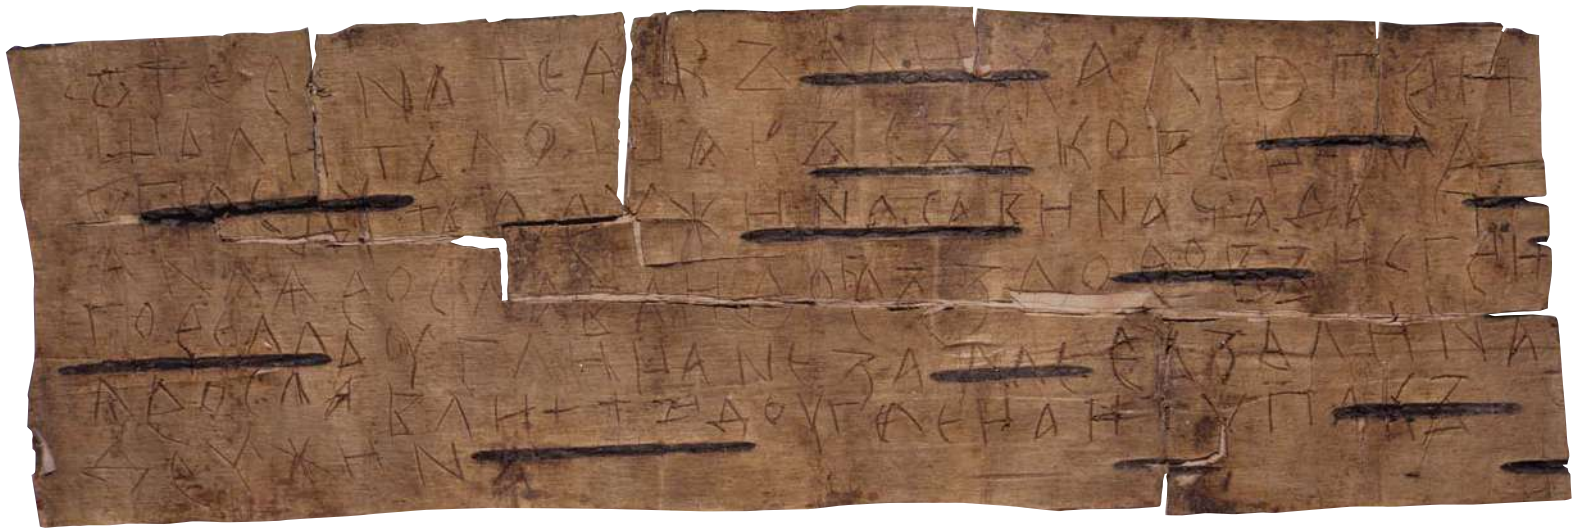 ѿ теренътеѧ къ михалю при
шлить лошакъ съ ѧковьцемъ
поедуть дружина савина чадь
ꙗ на ꙗрославли добръ здоровъ и с гри
горемь углицане замерьзли на
ꙗрославли ты до углеца и ту пълкъ
дружине